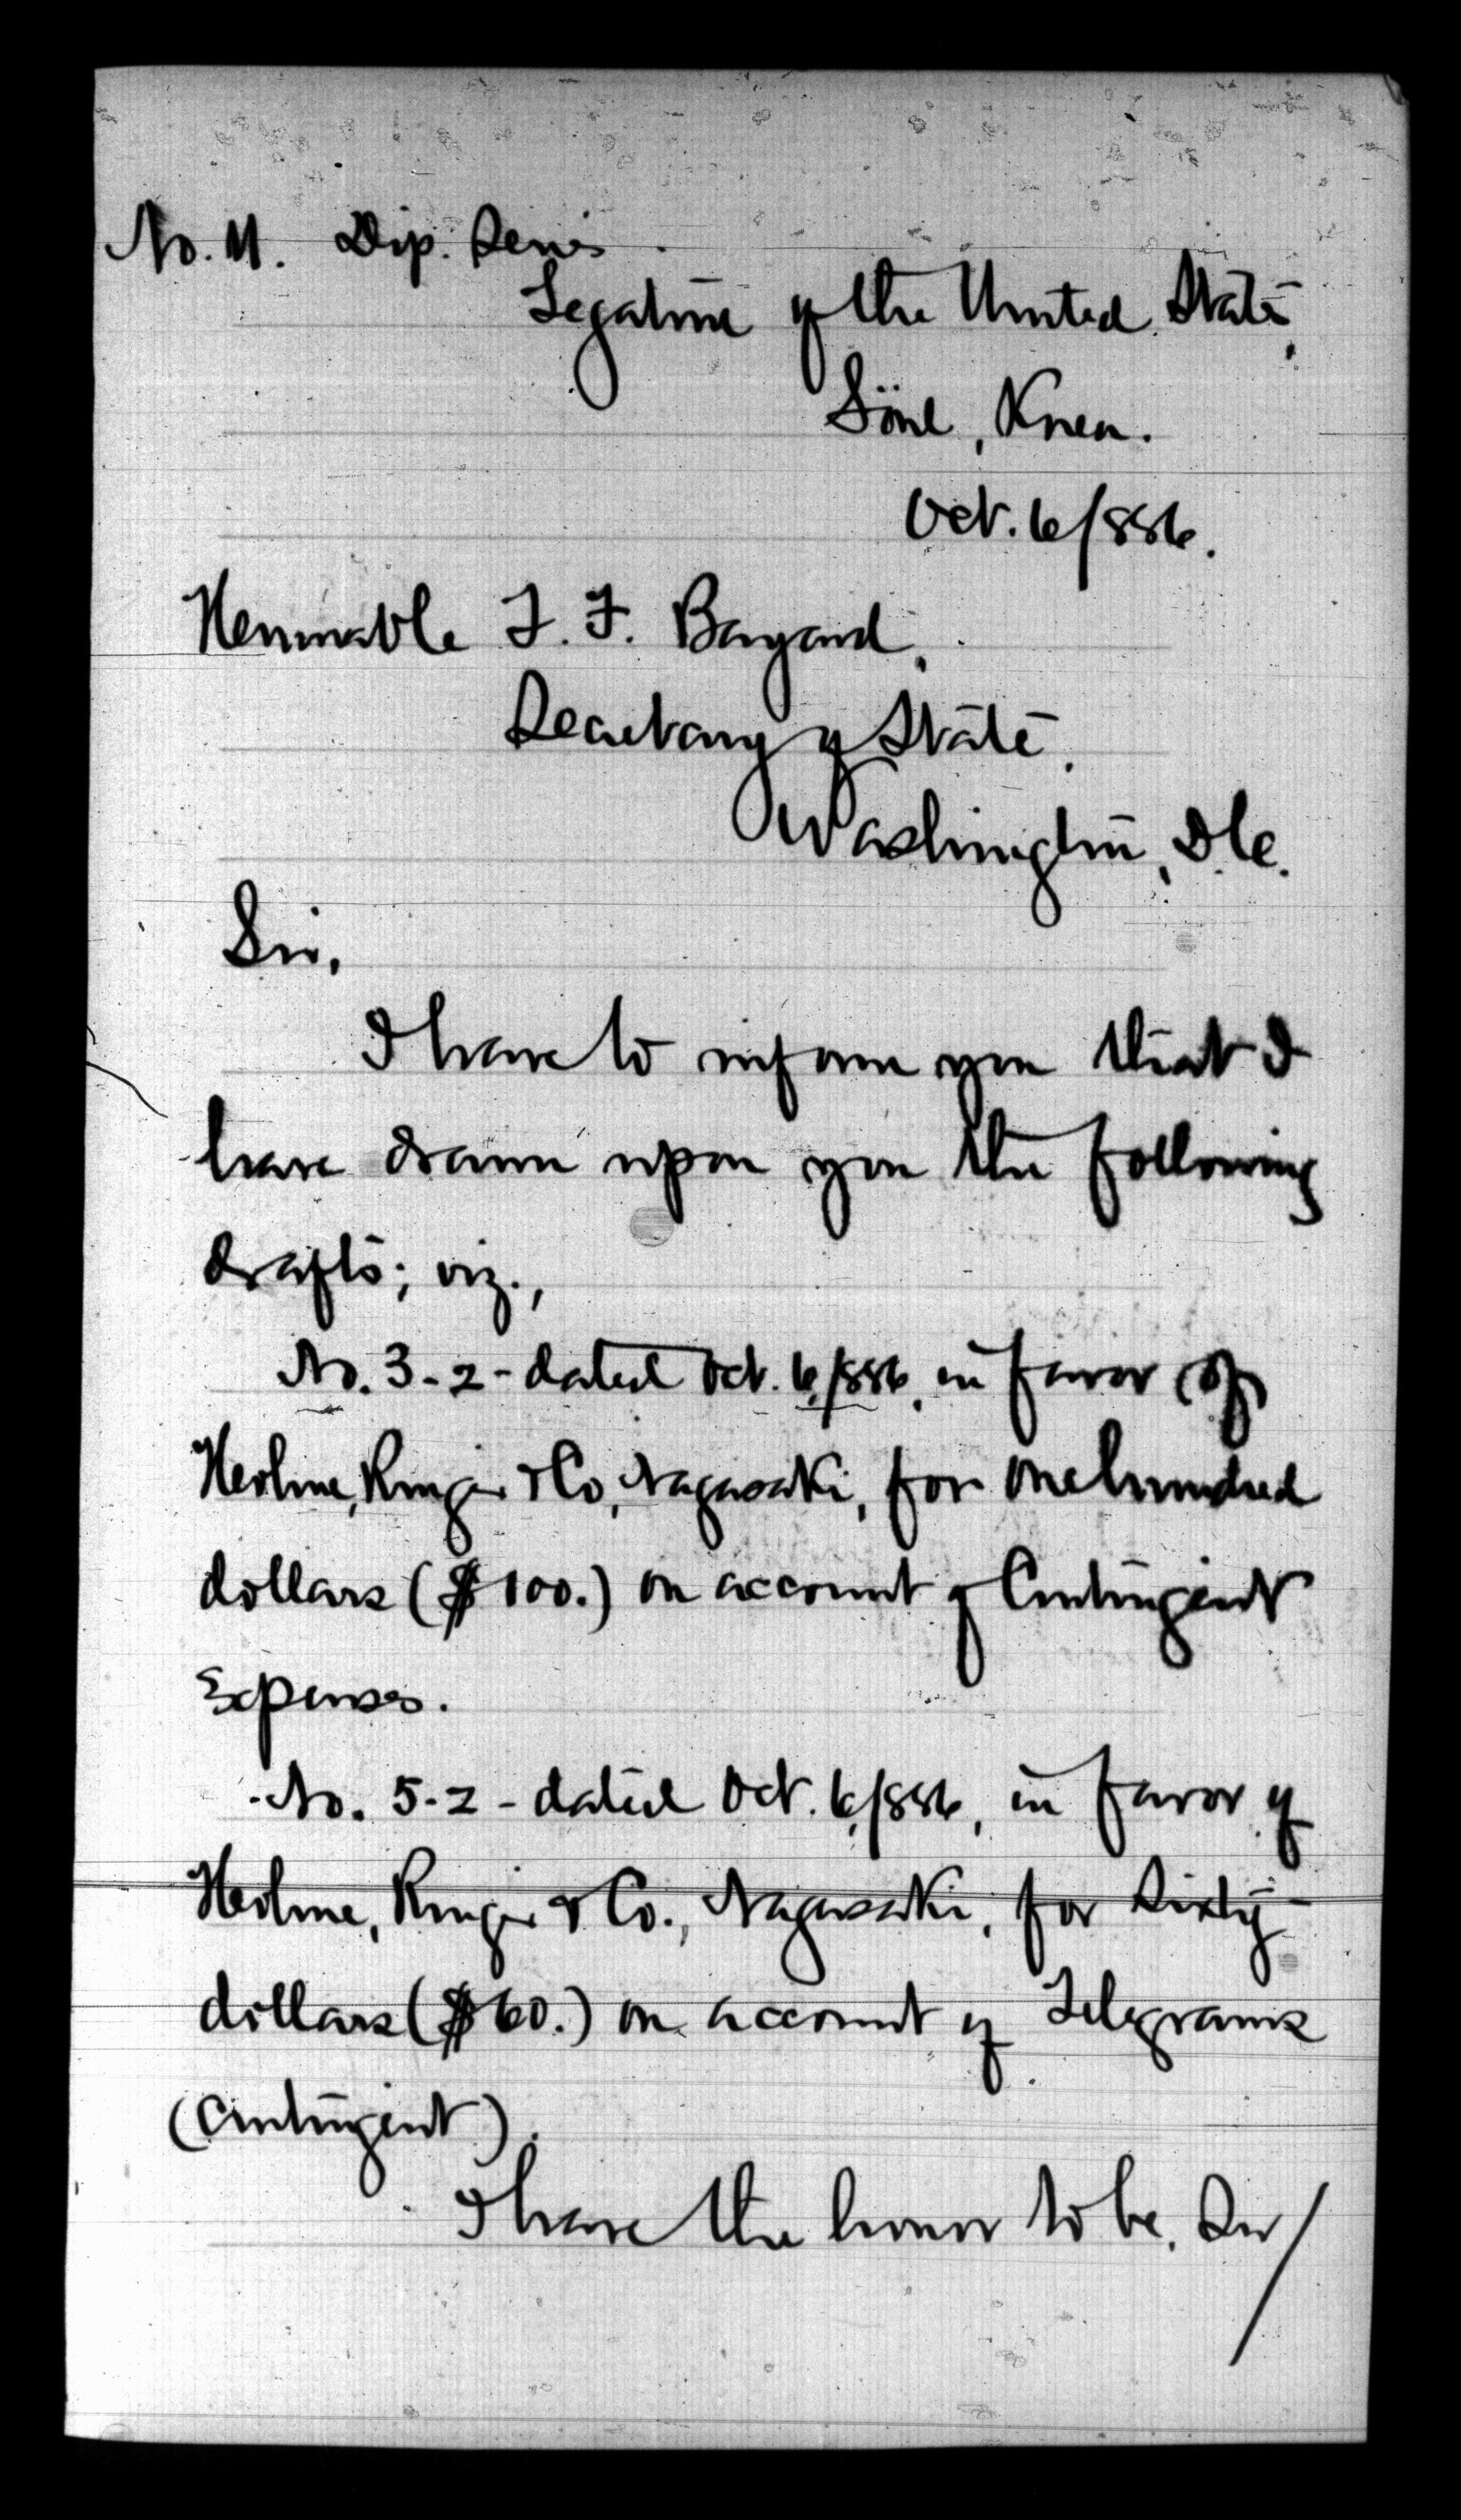 No. 11. Dip. Series.
Legation of the United States,
Söul, Korea.
Oct. 6/886.
Honorable T. F. Bayard,
Secretary of State,
Washington, D.C.
Sir,
I have to inform you that I
have drawn upon you the following
drafts; viz.,
No. 3-2-dated Oct. 6/886, in favor of
Holme, Ringer & Co, Nagasaki, for one hundred
dollars ($100.) on account of Contingent
Expenses.
No. 5-2-dated Oct. 6/886, in favor of
Holme, Ringer & Co., Nagasaki, for Sixty
dollars ($60.) on account of Telegrams
(Contingent).
I have the honor to be, Sir/